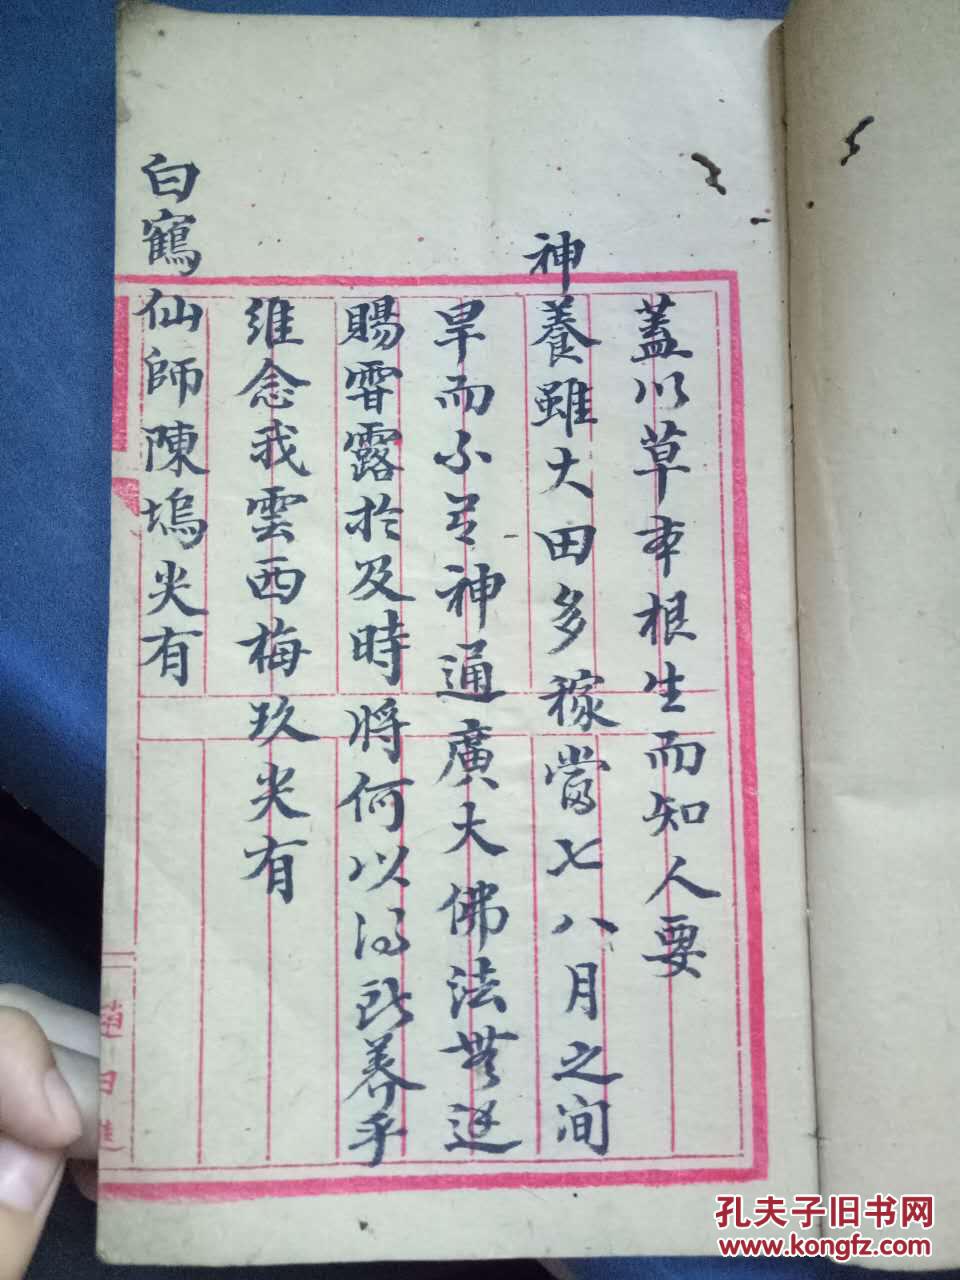 蓋以草本根生而知人要
神養雖大田多稼當七八月之间
旱而小若神通廣大佛法無边
賜霄露於及時將何以得此養乎
維念我雲西梅玖尖有
白鶴仙師陳塢尖有
孔夫子旧书网
www.kongfz.com